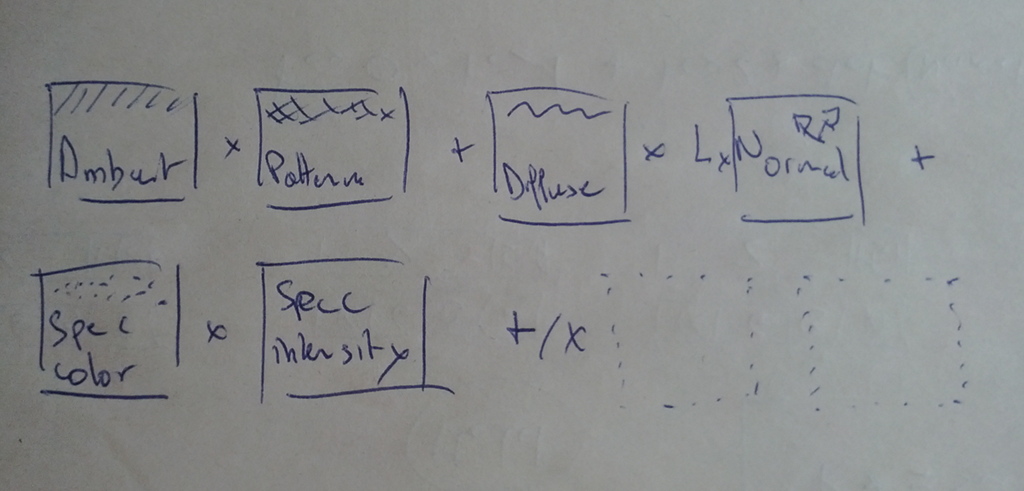 Ambient x Pattern + Diffuse x L x Normal +
Spec color x Spec intensity +/x